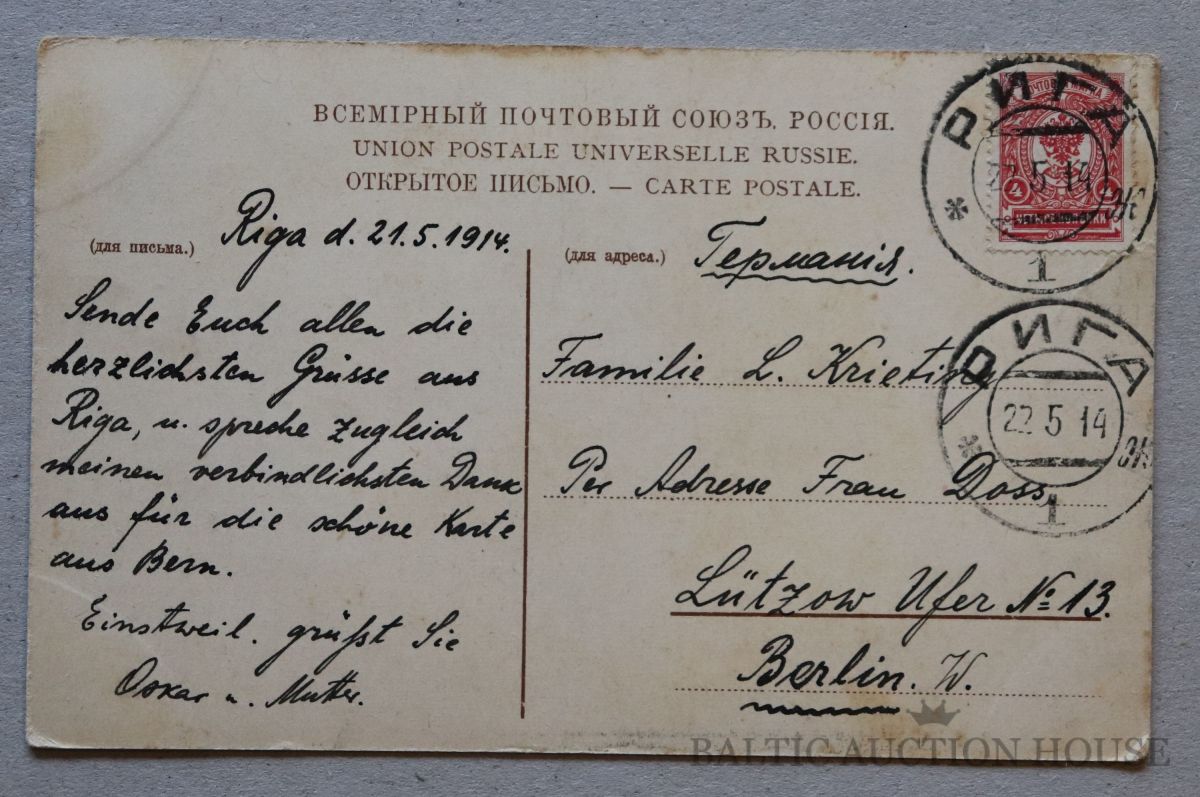 ВСЕМІРНЫЙ ПОЧТОВЫЙ СОЮЗЪ. РОССІЯ.
UNION POSTALE UNIVERSELLE RUSSIE.
ОТКРЫТОЕ ПИСЬМО. — CARTE POSTALE.
(для письма.)
Riga d. 21.5.1914.
Sende Euch allen die
herzlichsten Grüsse aus
Riga, u. spreche zugleich
meinen verbindlichsten Dank
aus für die schöne Karte
aus Bern.
Einstweil. grüßt Sie
Oskar u. Mutter.
(для адреса.)
Германія.
Familie L. Krieting
Per Adresse Frau Doss
Lützow Ufer № 13.
Berlin. W.
РИГА
22 5 14
1
4
РИГА
22 5 14
1
BALTIC AUCTION HOUSE